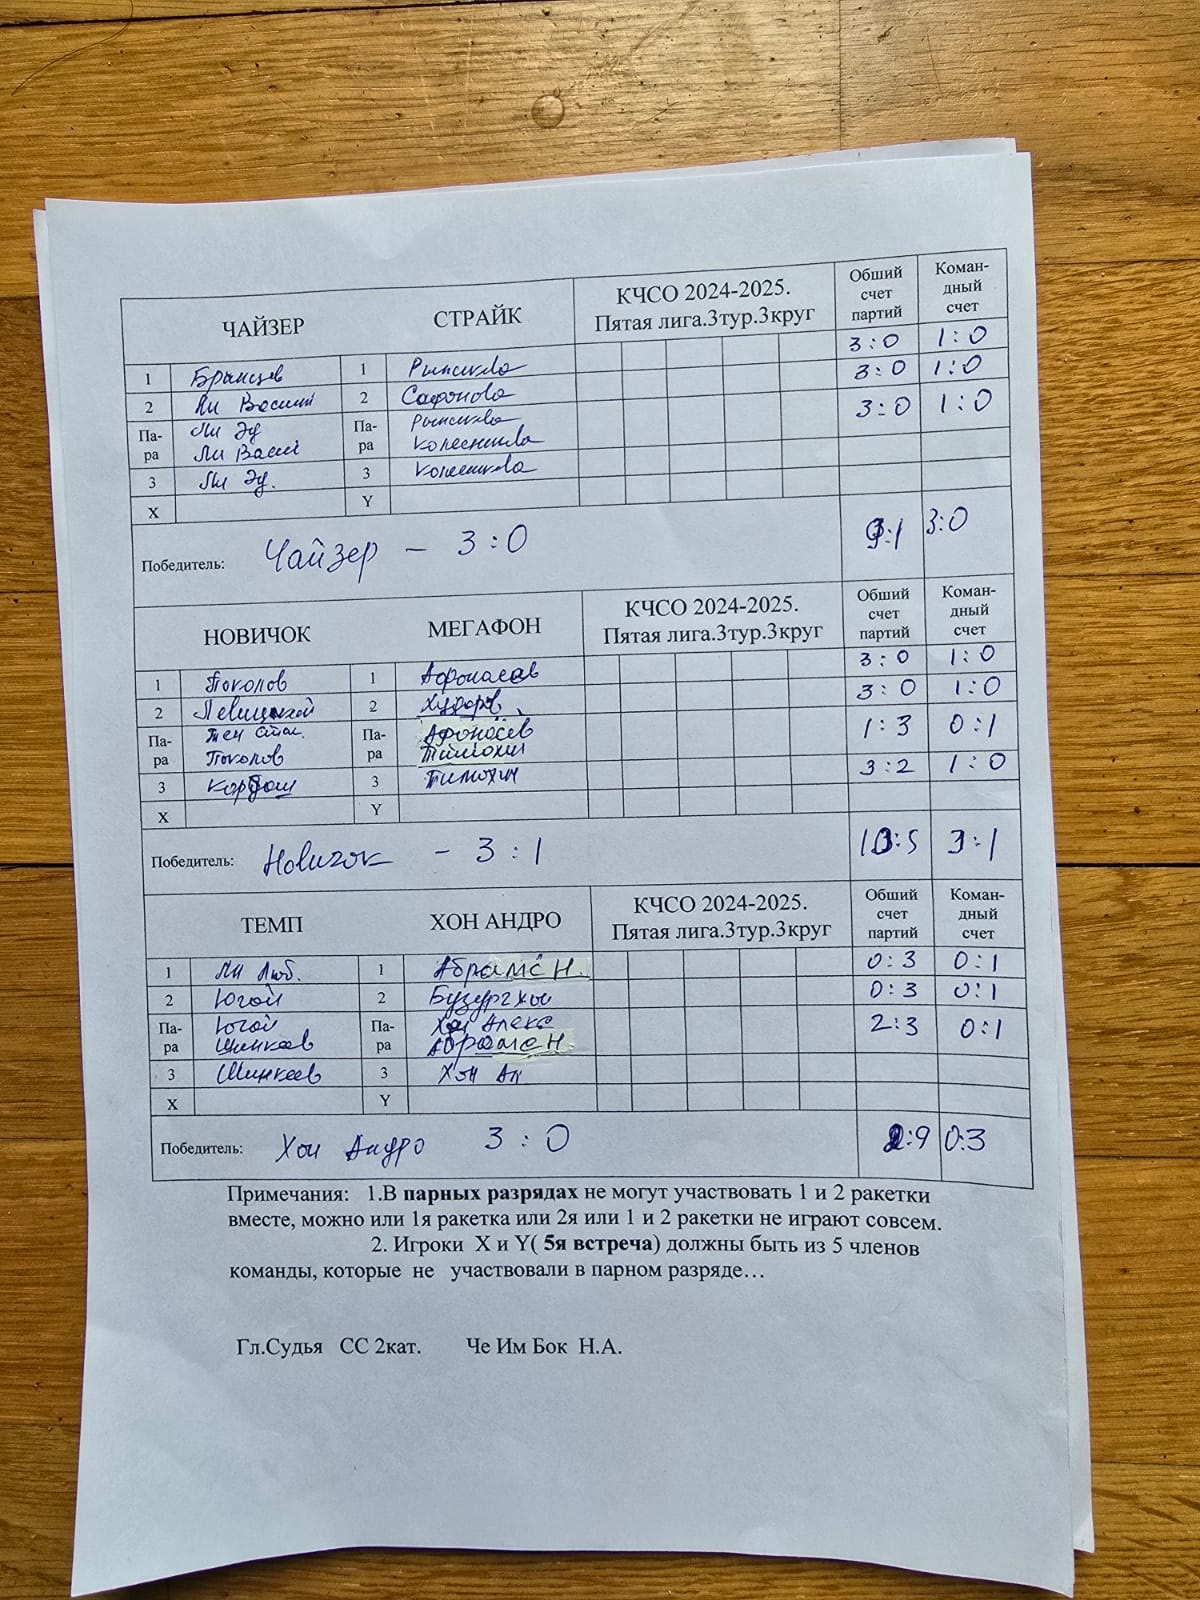 ЧАЙЗЕР СТРАЙК КЧСО 2024-2025. Пятая лига.3тур.3круг Обший счет партий Коман-дный счет
1 Брынцев 1 3:0 1:0
2 Ли Василий 2 Сафонова 3:0 1:0
Па-ра Ли Эд Па-ра 3:0 1:0
Ли Васил Колесникова
3 Ли Эд. 3 Колесникова
X Y
Победитель: Чайзер - 3:0 9:1 3:0
НОВИЧОК МЕГАФОН КЧСО 2024-2025. Пятая лига.3тур.3круг Обший счет партий Коман-дный счет
1 1 Афонасев 3:0 1:0
2 Левицкий 2 3:0 1:0
Па-ра Тен Стас. Па-ра Афоносев 1:3 0:1
Тимохин
3 3 Тимохин 3:2 1:0
X Y
Победитель: Новичок - 3:1 10:5 3:1
ТЕМП ХОН АНДРО КЧСО 2024-2025. Пятая лига.3тур.3круг Обший счет партий Коман-дный счет
1 Ли Люб. 1 0:3 0:1
2 Югой 2 Бузургхон 0:3 0:1
Па-ра Югой Па-ра Хон Алекс 2:3 0:1
Шинкаев
3 Шинкаев 3 Хон Ан
X Y
Победитель: Хон Андро 3:0 2:9 0:3
Примечания: 1.В парных разрядах не могут участвовать 1 и 2 ракетки
вместе, можно или 1я ракетка или 2я или 1 и 2 ракетки не играют совсем.
2. Игроки X и Y( 5я встреча) должны быть из 5 членов
команды, которые не участвовали в парном разряде…
Гл.Судья СС 2кат. Че Им Бок Н.А.